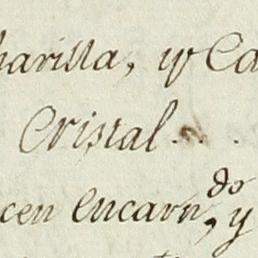 harilla, y Ca
Cristal . . .
cen encarn,do y